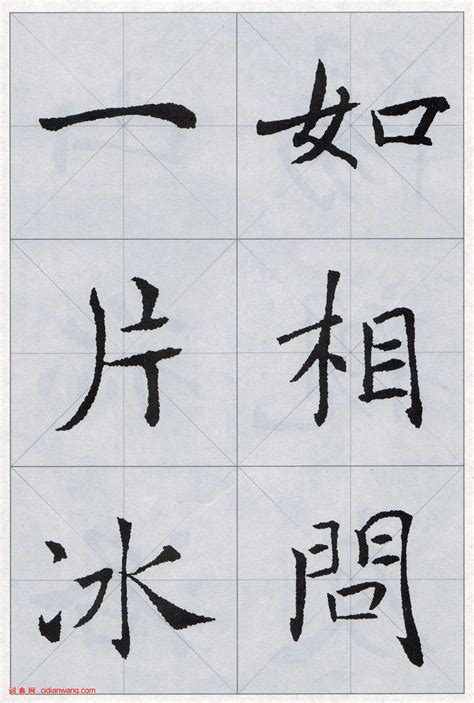 如相問
一片冰
词典网：cidianwang.com